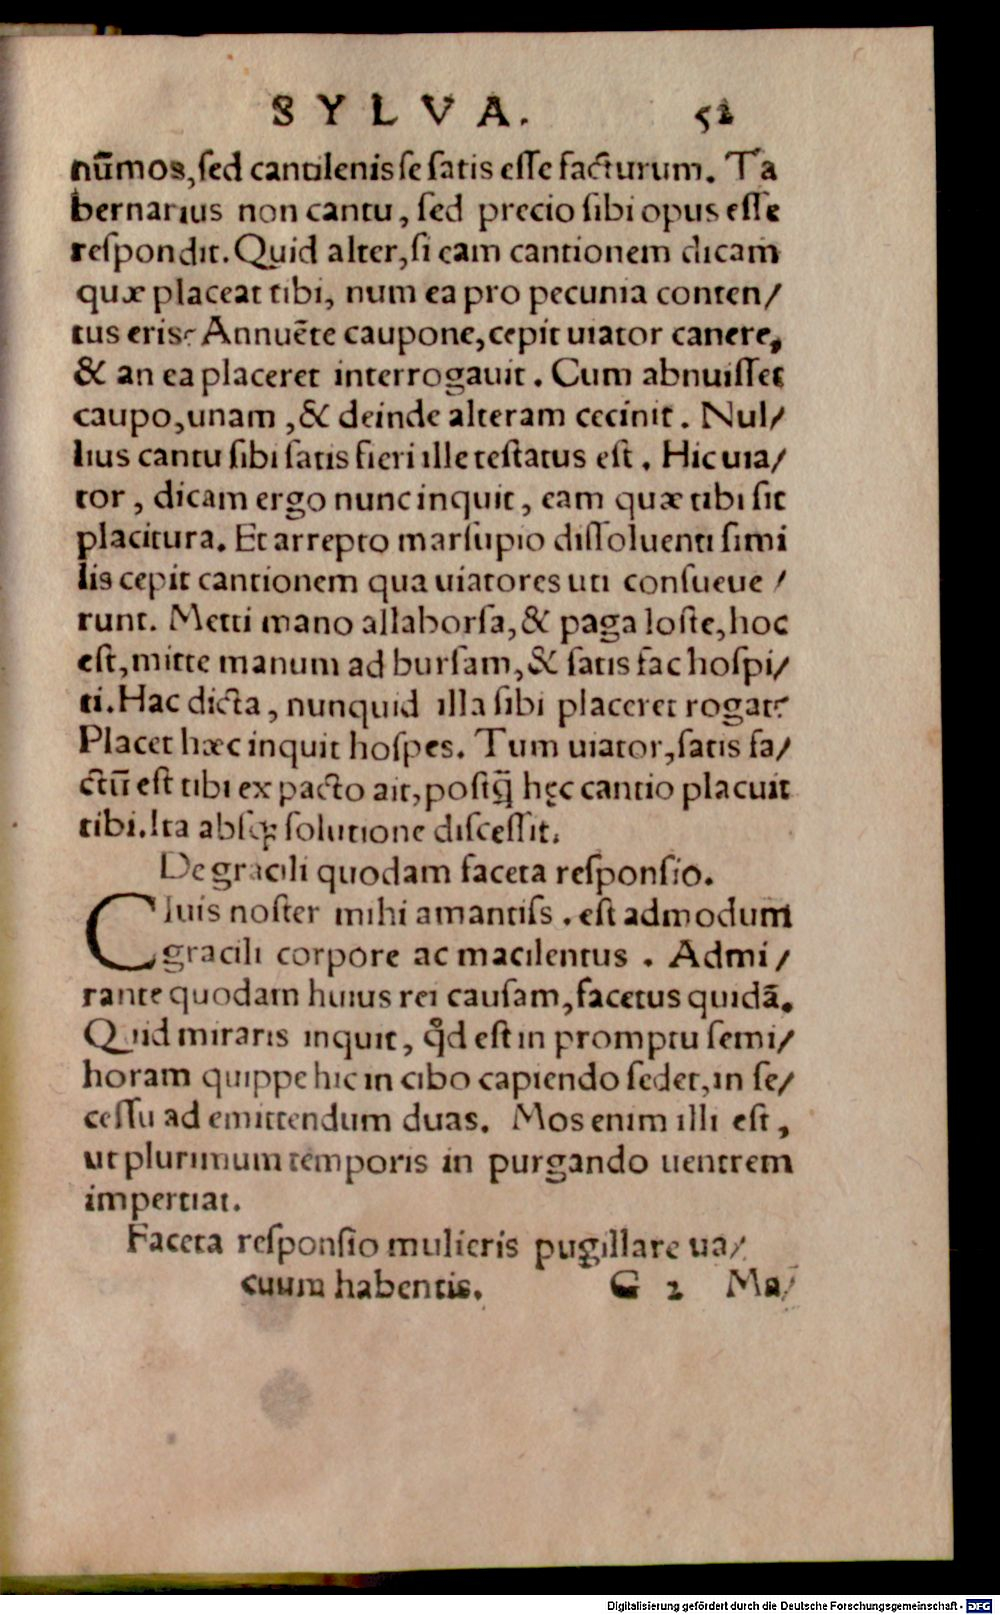 SYLVA. 52
nūmos, ſed cantilenis ſe ſatis eſſe facturum. Ta
bernarius non cantu, ſed precio ſibi opus eſſe
reſpondit. Quid alter, ſi eam cantionem dicam
quæ placeat tibi, num ea pro pecunia conten/
tus eris? Annuēte caupone, cepit uiator canere,
& an ea placeret interrogauit. Cum abnuiſſet
caupo, unam, & deinde alteram cecinit. Nul/
lius cantu ſibi ſatis fieri ille teſtatus eſt. Hic uia/
tor, dicam ergo nunc inquit, eam quæ tibi ſit
placitura. Et arrepto marſupio diſſoluenti ſimi
lis cepit cantionem qua uiatores uti conſueue/
runt. Metti mano allaborſa, & paga loſte, hoc
eſt, mitte manum ad burſam, & ſatis fac hoſpi/
ti. Hac dicta, nunquid illa ſibi placeret rogat?
Placet hæc inquit hoſpes. Tum uiator, ſatis fa/
ctū eſt tibi ex pacto ait, poſtq̄ hęc cantio placuit
tibi. Ita abſqꝫ ſolutione diſceſſit.
De gracili quodam faceta reſponſio.
Ciuis noſter mihi amantiſs. eſt admodum
gracili corpore ac macilentus. Admi/
rante quodam huius rei cauſam, facetus quidā.
Quid miraris inquit, qd̊ eſt in promptu ſemi/
horam quippe hic in cibo capiendo ſedet, in ſe/
ceſſu ad emittendum duas. Mos enim illi eſt,
ut plurimum temporis in purgando uentrem
impertiat.
Faceta reſponſio mulieris pugillare ua/
cuum habentis. G 2 Ma/
Digitalisierung gefördert durch die Deutsche Forschungsgemeinschaft - DFG